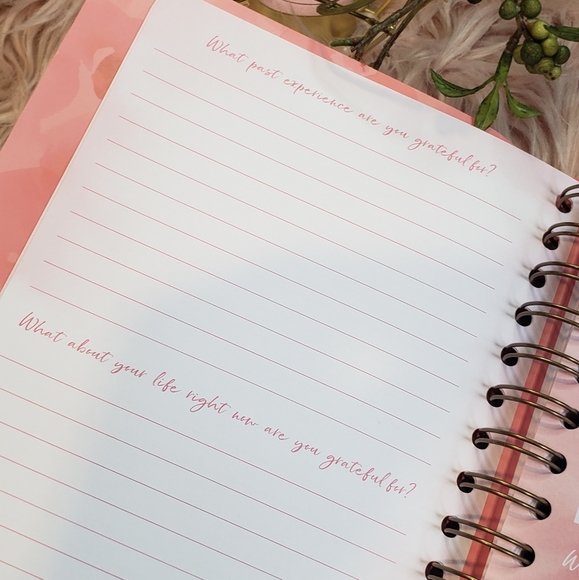 What past experience are you grateful for?
What about your life right now are you grateful for?